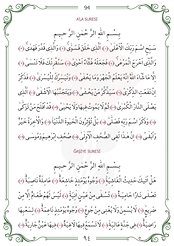 94
ALA SURESİ
بِسْمِ اللّٰهِ الرَّحْمٰنِ الرَّحِيمِ
سَبِّحِ اسْمَ رَبِّكَ الْاَعْلٰى اَلَّذِي خَلَقَ فَسَوّٰى وَالَّذِي قَدَّرَ فَهَدٰى
وَالَّذِي اَخْرَجَ الْمَرْعٰى فَجَعَلَهُ غُثَاءً اَحْوٰى سَنُقْرِئُكَ فَلَا تَنْسٰى
اِلَّا مَا شَاءَ اللّٰهُ اِنَّهُ يَعْلَمُ الْجَهْرَ وَمَا يَخْفٰى وَنُيَسِّرُكَ لِلْيُسْرٰى فَذَكِّرْ
اِنْ نَفَعَتِ الذِّكْرٰى سَيَذَّكَّرُ مَنْ يَخْشٰى وَيَتَجَنَّبُهَا الْاَشْقٰى اَلَّذِي
يَصْلَى النَّارَ الْكُبْرٰى ثُمَّ لَا يَمُوتُ فِيهَا وَلَا يَحْيٰى قَدْ اَفْلَحَ مَنْ تَزَكّٰى
وَذَكَرَ اسْمَ رَبِّهِ فَصَلّٰى بَلْ تُؤْثِرُونَ الْحَيٰوةَ الدُّنْيَا وَالْاٰخِرَةُ خَيْرٌ
وَاَبْقٰى اِنَّ هٰذَا لَفِي الصُّحُفِ الْاُولٰى صُحُفِ اِبْرٰهِيمَ وَمُوسٰى
GAŞİYE SURESİ
بِسْمِ اللّٰهِ الرَّحْمٰنِ الرَّحِيمِ
هَلْ اَتٰيكَ حَدِيثُ الْغَاشِيَةِ وُجُوهٌ يَوْمَئِذٍ خَاشِعَةٌ عَامِلَةٌ نَاصِبَةٌ
تَصْلٰى نَارًا حَامِيَةً تُسْقٰى مِنْ عَيْنٍ اٰنِيَةٍ لَيْسَ لَهُمْ طَعَامٌ اِلَّا مِنْ
ضَرِيعٍ لَا يُسْمِنُ وَلَا يُغْنِي مِنْ جُوعٍ وُجُوهٌ يَوْمَئِذٍ نَاعِمَةٌ لِسَعْيِهَا
رَاضِيَةٌ فِي جَنَّةٍ عَالِيَةٍ لَا تَسْمَعُ فِيهَا لَاغِيَةً فِيهَا عَيْنٌ جَارِيَةٌ
٩٤